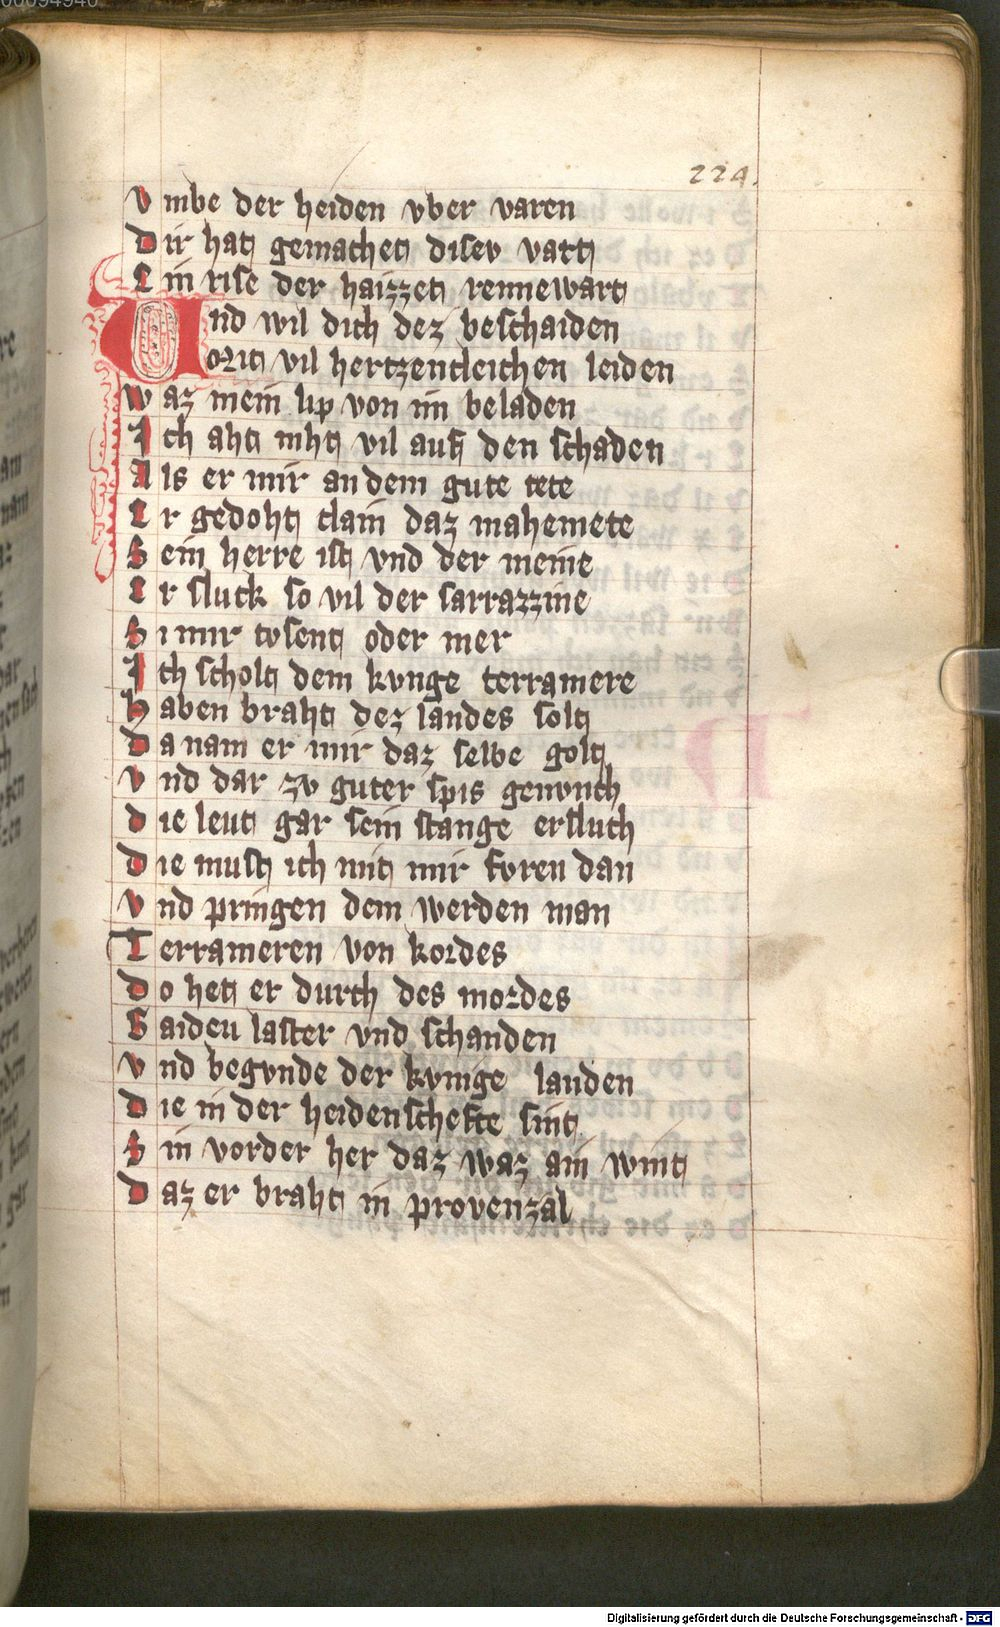 00094940
224.
Vmbe der heiden vber varen
Dir hat gemachet disev vart
Ein rise der haizzet rennewart
Vnd wil dich dez beschaiden
oritz vil hertzencleichen leiden
Waz mein lip von im beladen
Ich aht niht vil auf den schaden
Als er mir an dem gute tete
Er gedoht clain daz mahemete
Sein herre ist vnd der meine
Er sluck so vil der sarrazzine
Si mir tvsent oder mer
Ich scholt dem kvnge terramere
Haben braht dez landes solt
Da nam er mir daz selbe golt
Vnd dar zv guter spis genvnch
Die leut gar sein stange ersluch
Die must ich mit mir fvren dan
Vnd pringen dem werden man
Terrameren von kordes
Do het er durch des mordes
Baiden laster vnd schanden
Vnd begvnde der kvnige landen
Die in der heidenschefte sint
Sin vorder her daz waz ain wint
Daz er braht in provenzal
Digitalisierung gefördert durch die Deutsche Forschungsgemeinschaft - DFG